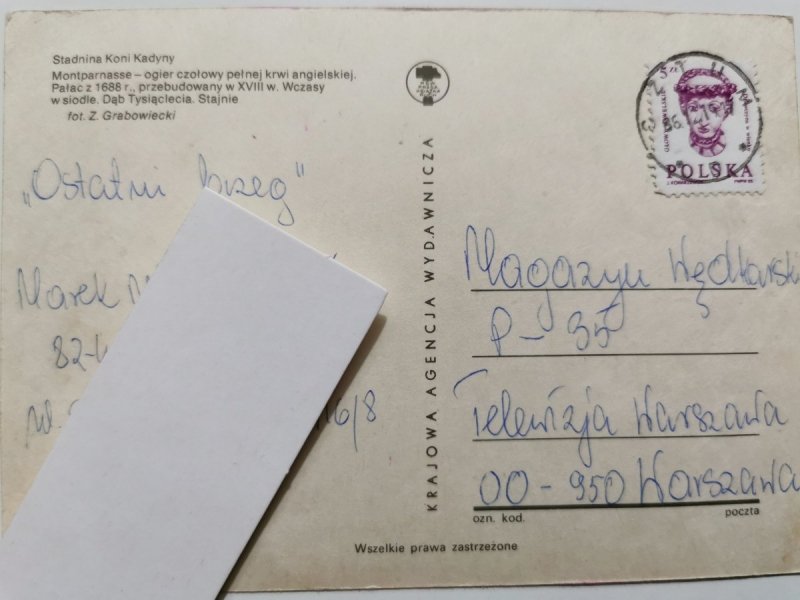 Stadnina Koni Kadyny
Montparnasse – ogier czołowy pełnej krwi angielskiej.
Pałac z 1688 r., przebudowany w XVIII w. Wczasy
w siodle. Dąb Tysiąclecia. Stajnie
fot. Z. Grabowiecki
„Ostatni brzeg"
Marek
82-
16/8
KRAJOWA AGENCJA WYDAWNICZA
5 zł
POLSKA
Magazyn Wędkarski
P-35
Telewizja Warszawa
00-950 Warszawa
ozn. kod.
poczta
Wszelkie prawa zastrzeżone